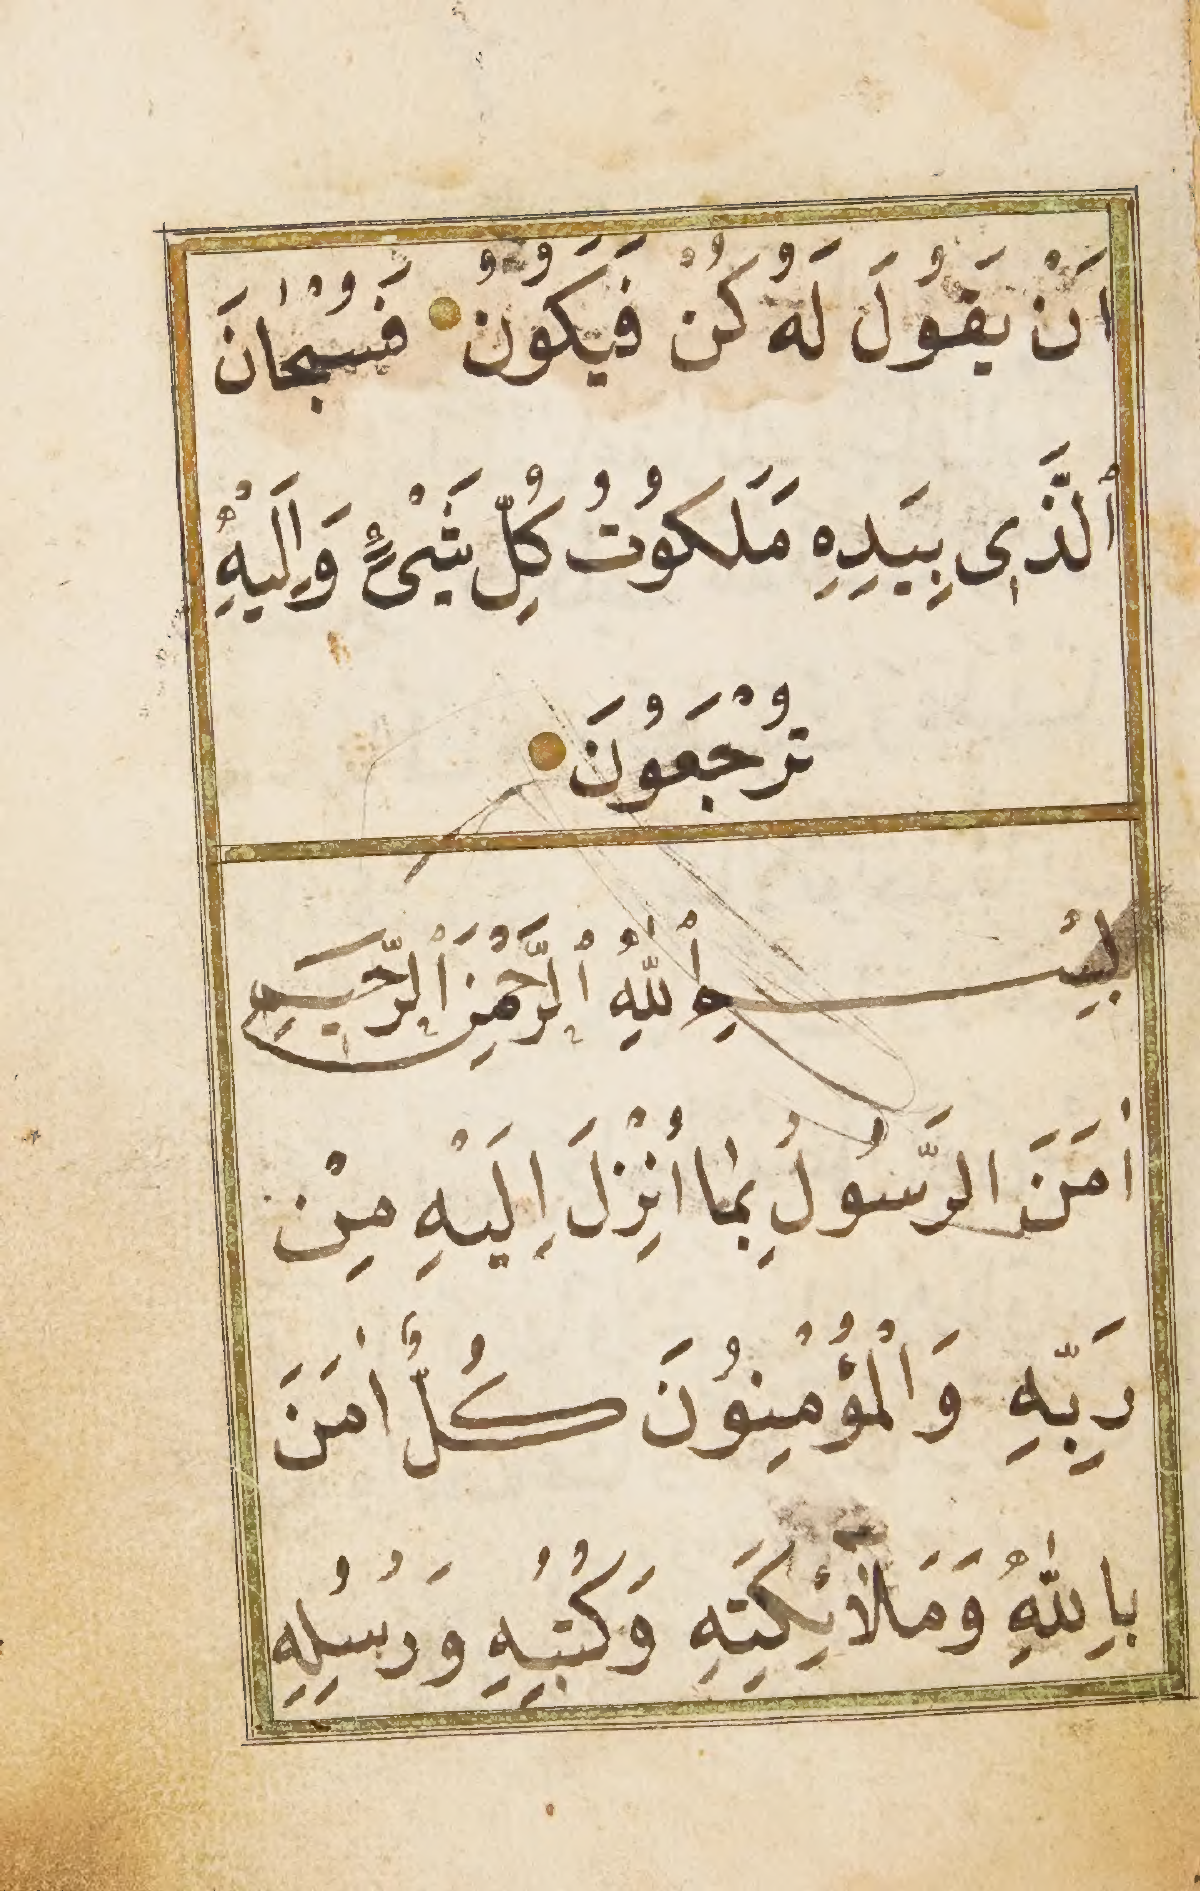 اَنْ يَقُولَ لَهُ كُنْ فَيَكُونُ فَسُبْحَانَ
ٱلَّذِى بِيَدِهِ مَلَكُوتُ كُلِّ شَىْءٍ وَاِلَيْهِ
تُرْجَعُونَ
بِسْمِ ٱللّٰهِ ٱلرَّحْمٰنِ ٱلرَّحِيمِ
اٰمَنَ الرَّسُولُ بِمَا اُنْزِلَ اِلَيْهِ مِنْ
رَبِّهِ وَالْمُؤْمِنُونَ كُلٌّ اٰمَنَ
بِاللّٰهِ وَمَلَآئِكَتِهِ وَكُتُبِهِ وَرُسُلِهِ